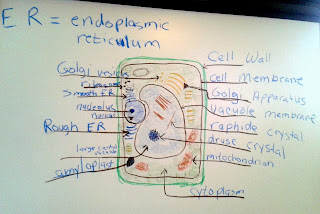 ER = endoplasmic
reticulum
Golgi vesicle
ribosomes
Smooth ER
nucleolus
nucleus
Rough ER
large central
vacuole
amyloplast
Cell Wall
Cell Membrane
Golgi Apparatus
Vacuole membrane
raphide crystal
druse crystal
mitochondrion
cytoplasm